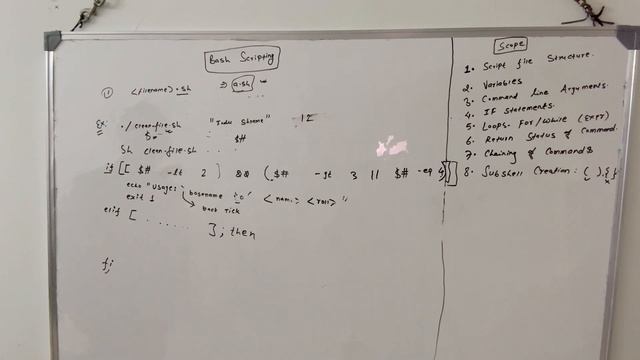 Bash Scripting
① <filename>.sh ⇒ a.sh
Ex: ./clean-file.sh "Indu Sharma" 12
$0 $#
Sh clean-file.sh . . .
if [[ $# -lt 2 ] && ( $# -gt 3 || $# -eq 4)]
echo "Usage: basename $0 <name> <roll>"
exit 1 back tick
elif [ . . . . . . . ]; then
fi
Scope
1. Script file Structure.
2. Variables
3. Command Line Arguments.
4. IF Statements.
5. Loops. For/While (expr)
6. Return Status of Command.
7. Chaining of Commands
8. Subshell Creation: ( ), { }